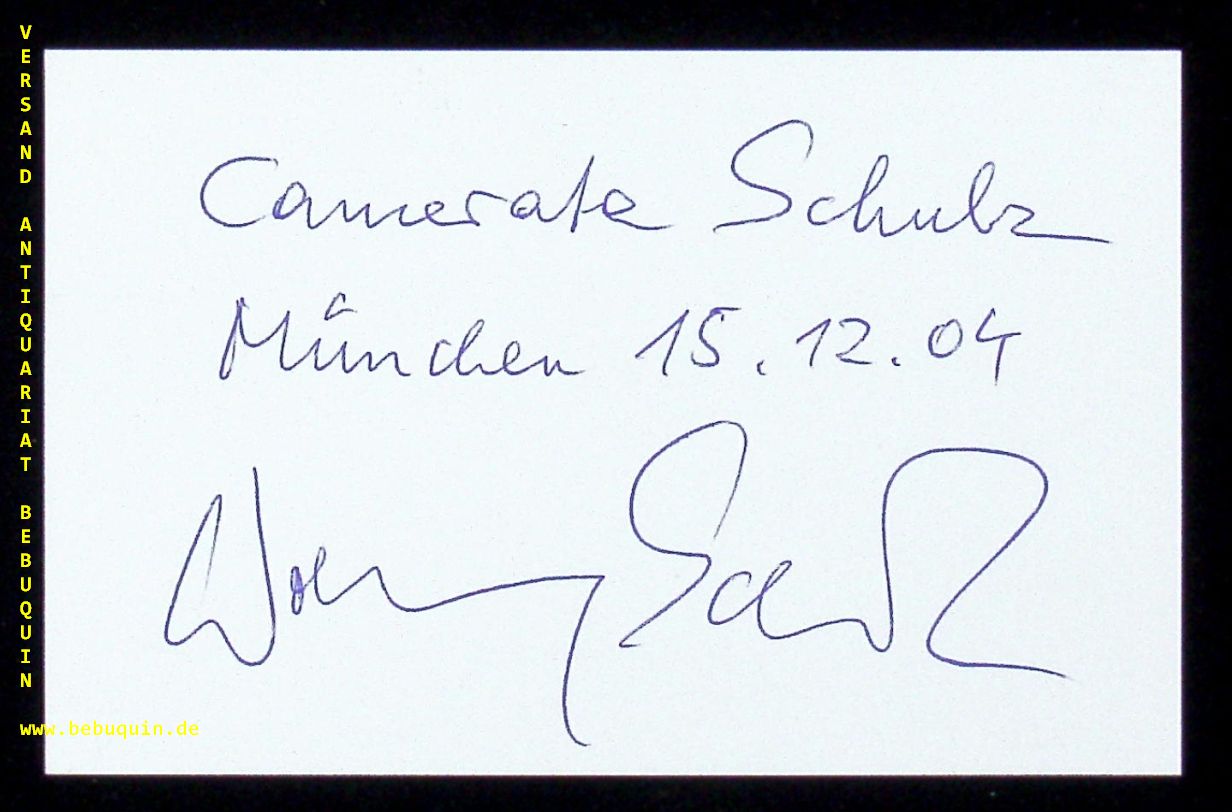 VERSAND ANTIQUARIAT BEBUQUIN
Camerata Schulz
München 15.12.04
www.bebuquin.de